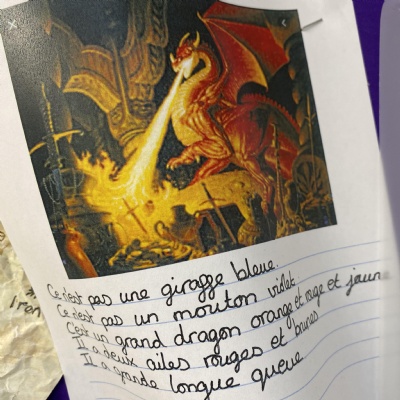 Ce n'est pas une giraffe bleue.
Ce n'est pas un mouton violet
C'est un grand dragon orange et rouge et jaune
Il a deux ailes rouges et brunes
Il a grande longue queue